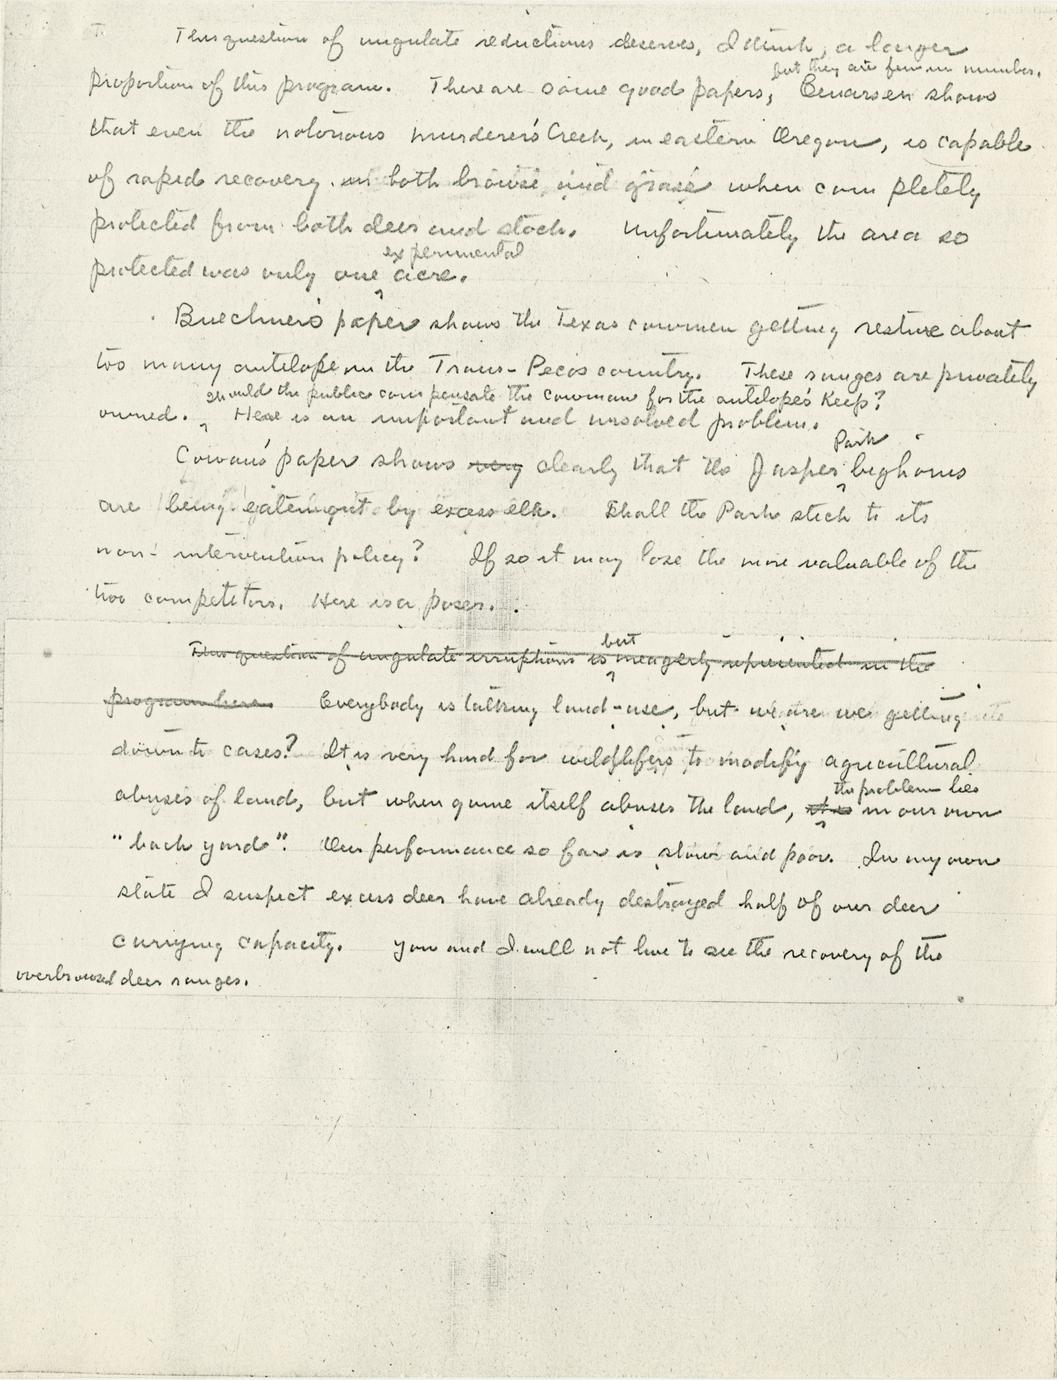 This question of ungulate reductions deserves, I think, a larger
but they are few in number.
proportion of this program. There are some good papers; Einarsen shows
that even the notorious Murderer's Creek, in eastern Oregon, is capable
of rapid recovery in both browse and grass when completely
protected from both deer and stock. Unfortunately the area so
experimental
protected was only one acre.
Buechner's paper shows the Texas cowmen getting restive about
too many antelope in the Trans-Pecos country. These ranges are privately
should the public compensate the cowman for the antelope's keep?
owned. Here is an important and unsolved problem.
Park
Cowan's paper shows very clearly that the Jasper bighorns
are being eaten out by excess elk. Shall the Park stick to its
non-intervention policy? If so it may lose the more valuable of the
two competitors. Here is a poser.
but
This question of ungulate irruptions is meagerly represented in the
program here Everybody is talking land-use, but are we getting
down to cases? It is very hard for wildlifers to modify agricultural
the problem lies
abuses of land, but when game itself abuses the land, it is in our own
"back yard". Our performance so far is slow and poor. In my own
state I suspect excess deer have already destroyed half of our deer
carrying capacity. You and I will not live to see the recovery of the
overbrowsed deer ranges.